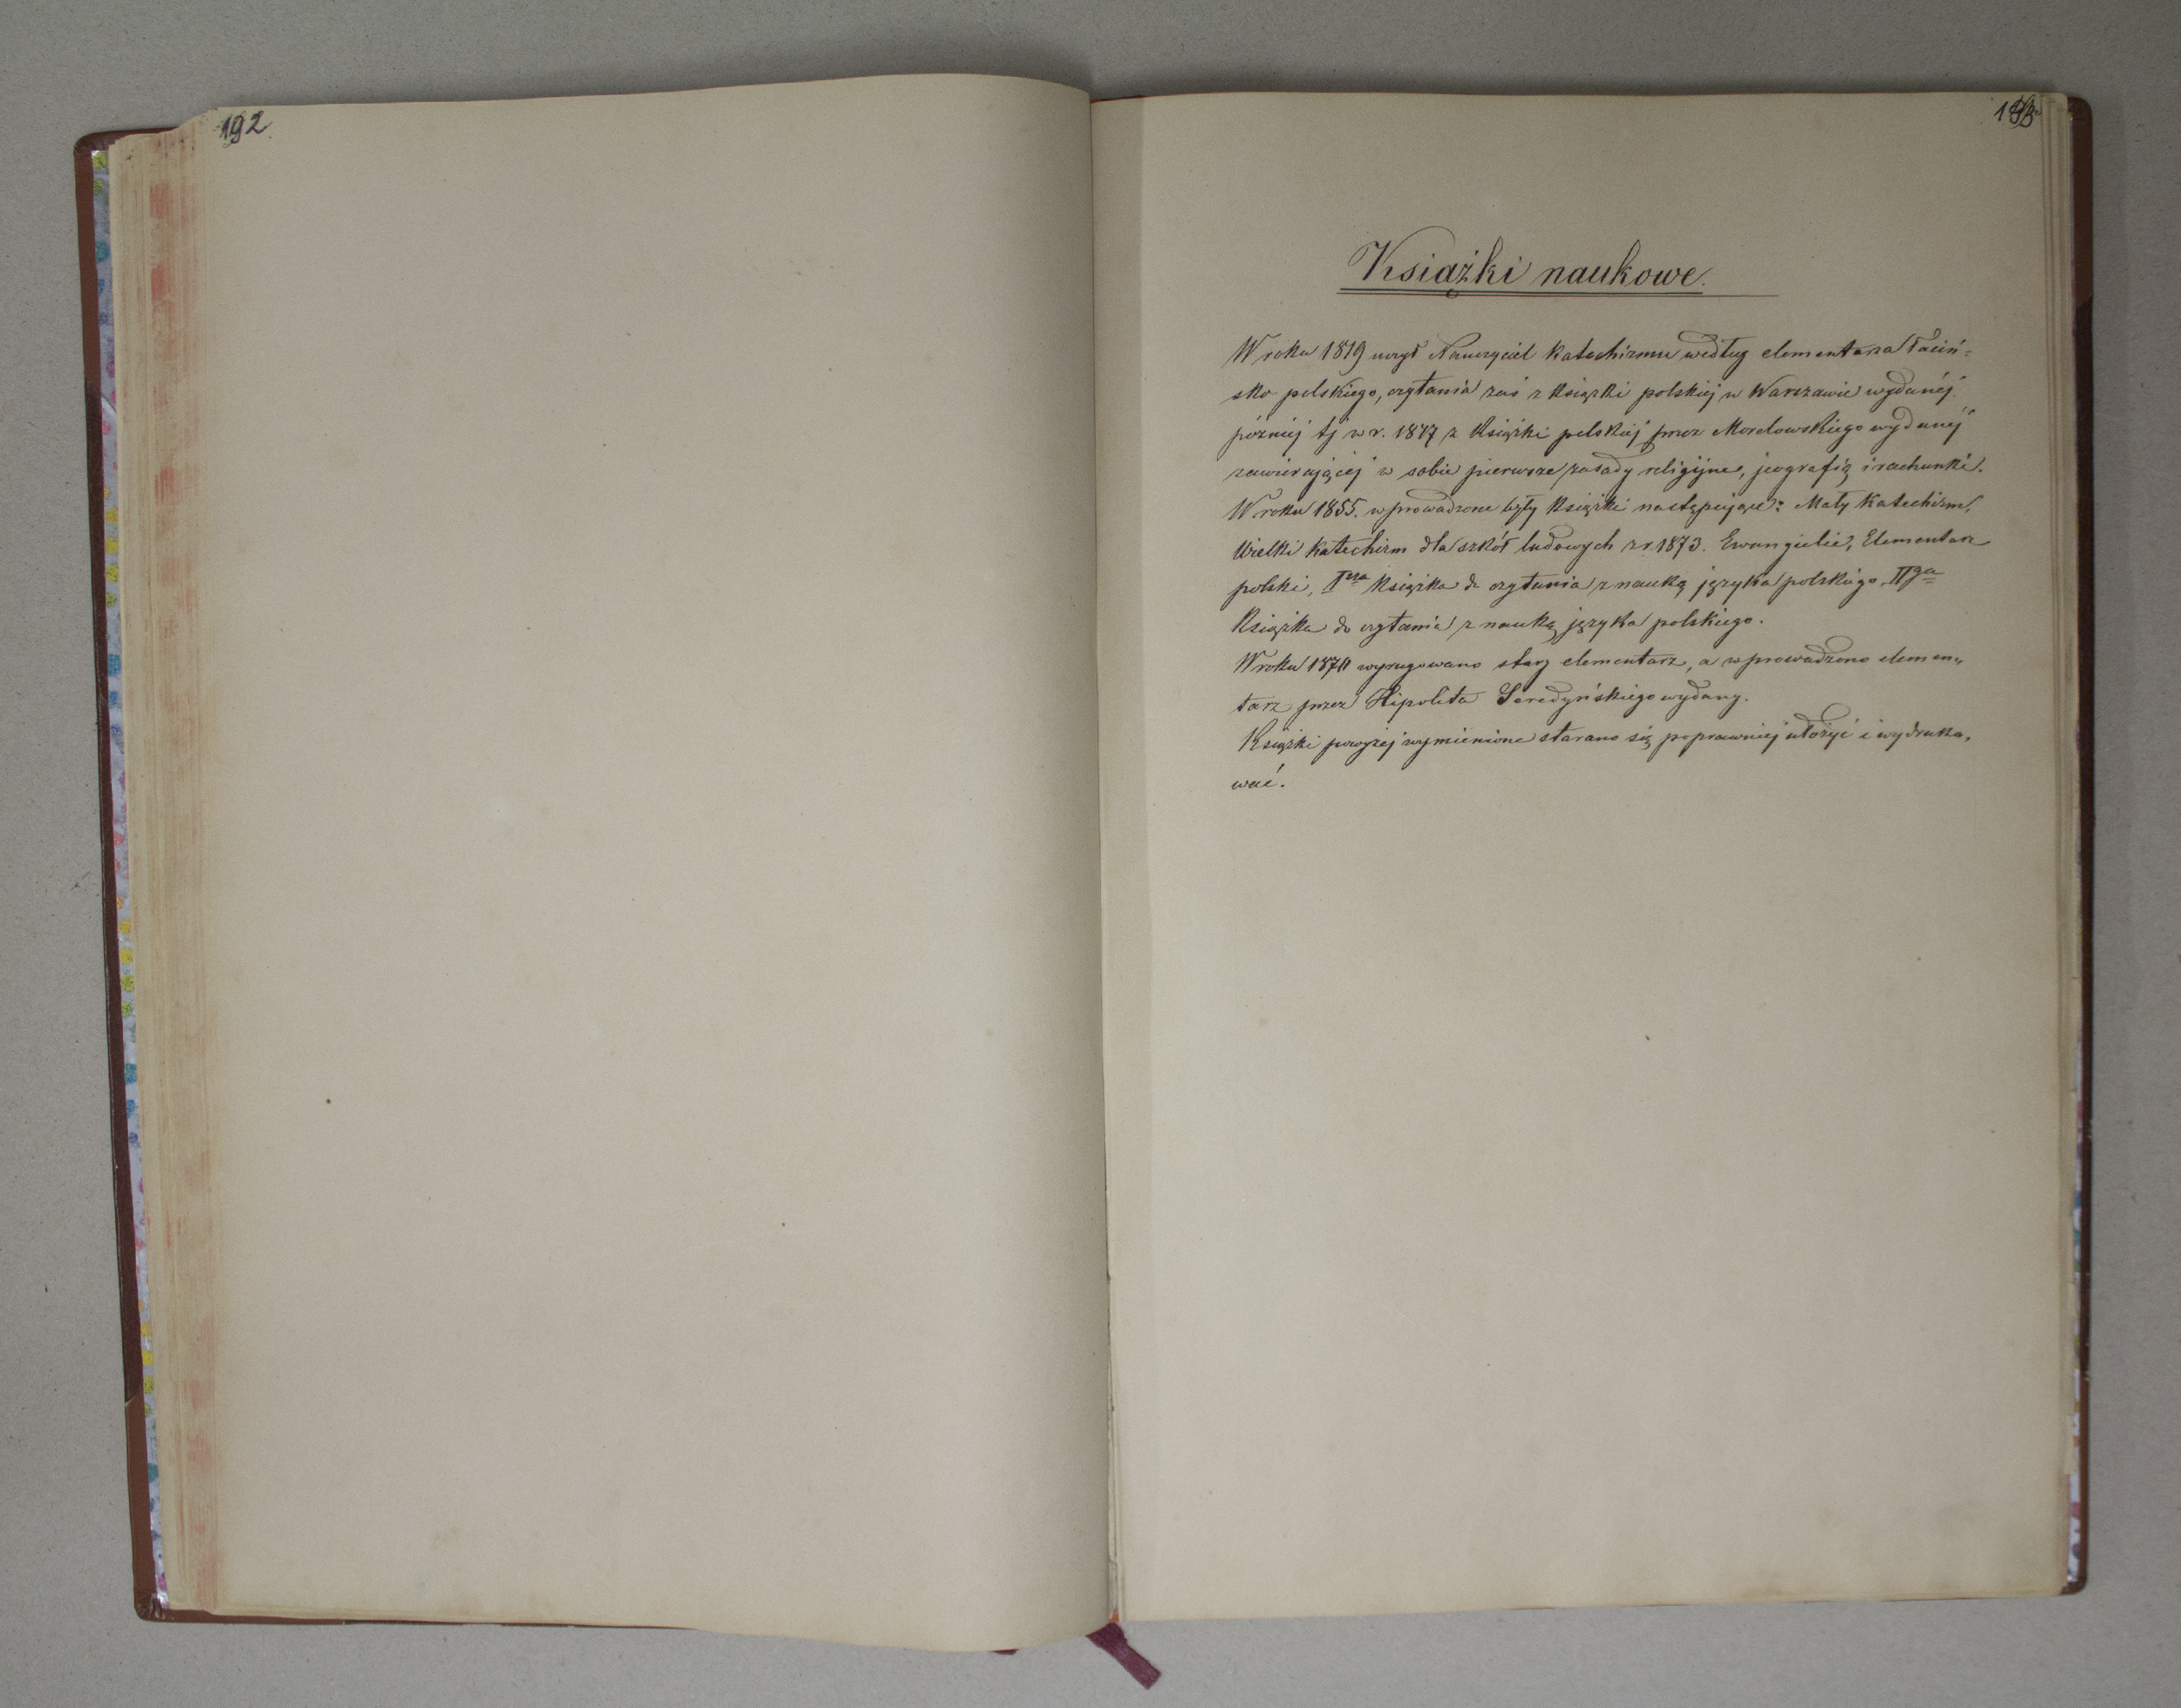 192
193
Książki naukowe.
W roku 1819 uczył Nauczyciel katechizmu według elementarza łaciń=
sko polskiego, czytania zaś z książki polskiéj w Warszawie wydanéj.
póżniej tj w r. 1847 z książki polskiéj przez Morelowskiego wydanéj
zawierającéj w sobie pierwsze zasady religijne, jeografią i rachunki.
W roku 1855. wprowadzone były książki następujące: Mały katechizm,
Wielki katechizm dla szkół ludowych z r. 1873. Ewangielie, Elementarz
polski, Isza książka do czytania z nauką języka polskiego, IIga
książka do czytania z nauką języka polskiego.
W roku wyrugowano stary elementarz, a wprowadzono elemen„
tarz przez Hipolita Seredyńskiego wydany.
Książki powyżej wymienione starano się poprawniej ułożyć i wydruko„
wać.